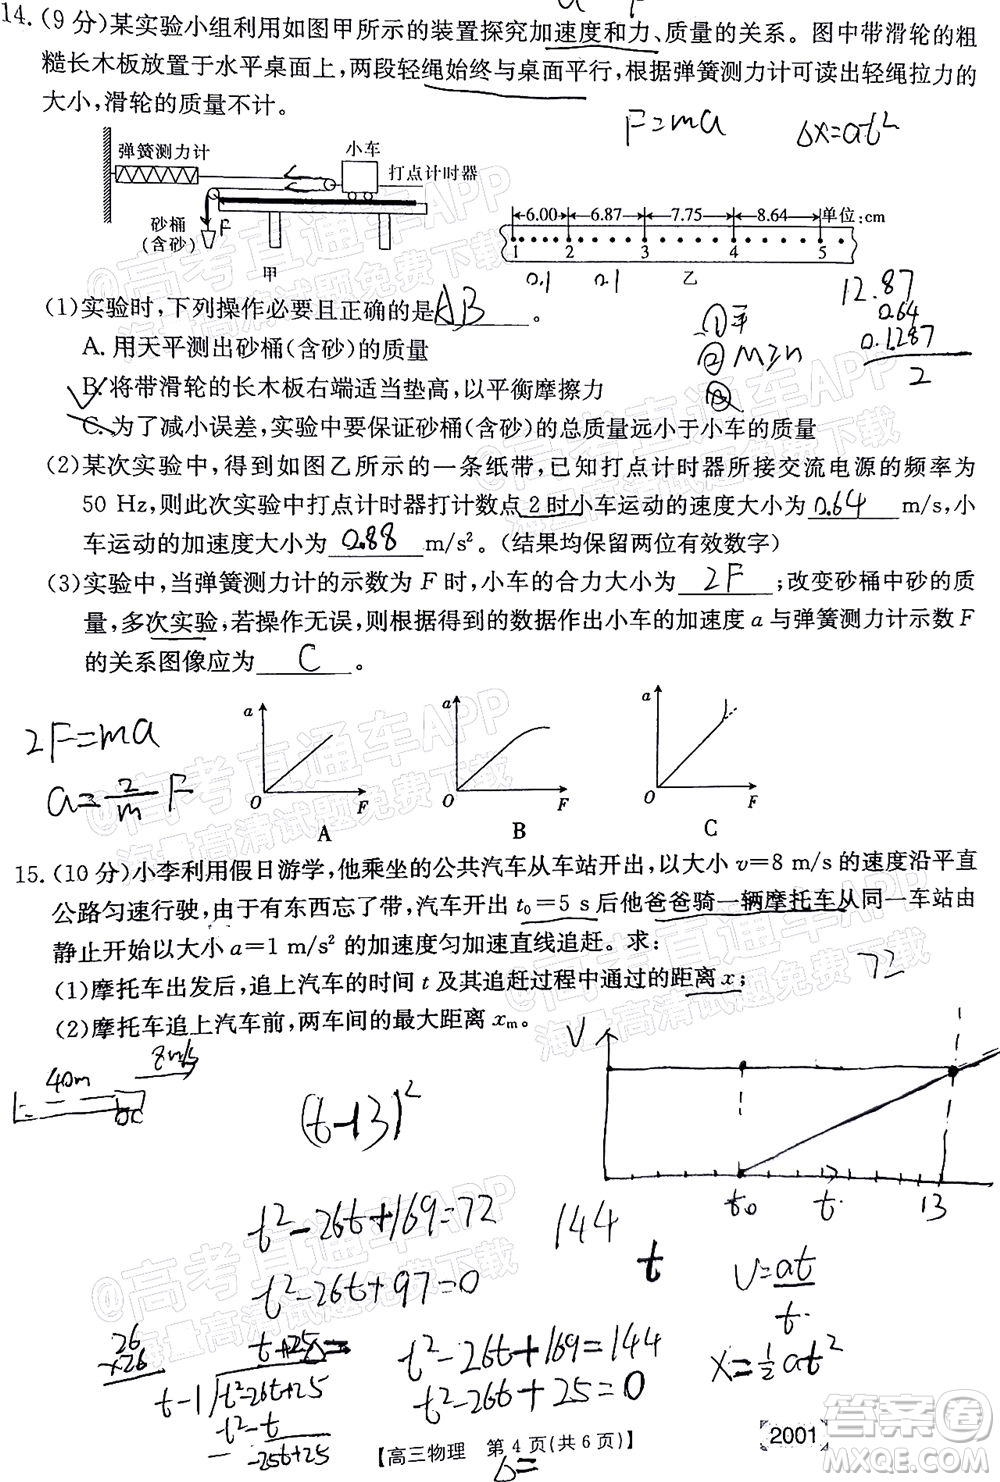 14.(9分)某实验小组利用如图甲所示的装置探究加速度和力、质量的关系。图中带滑轮的粗
糙长木板放置于水平桌面上,两段轻绳始终与桌面平行,根据弹簧测力计可读出轻绳拉力的
大小,滑轮的质量不计。
F=ma
Δx=at²
弹簧测力计
小车
打点计时器
砂桶
(含砂)
F
甲
6.00 6.87 7.75 8.64 单位:cm
1 2 3 4 5
0.1 0.1 乙
12.87
0.64
0.1287
2
(1)实验时,下列操作必要且正确的是AB。
① 平
② M≥m
A.用天平测出砂桶(含砂)的质量
B.将带滑轮的长木板右端适当垫高,以平衡摩擦力
C.为了减小误差,实验中要保证砂桶(含砂)的总质量远小于小车的质量
(2)某次实验中,得到如图乙所示的一条纸带,已知打点计时器所接交流电源的频率为
50 Hz,则此次实验中打点计时器打计数点2时小车运动的速度大小为 0.64 m/s,小
车运动的加速度大小为 0.88 m/s²。(结果均保留两位有效数字)
(3)实验中,当弹簧测力计的示数为F时,小车的合力大小为 2F ;改变砂桶中砂的质
量,多次实验,若操作无误,则根据得到的数据作出小车的加速度a与弹簧测力计示数F
的关系图像应为 C 。
2F=ma
a=2/m F
a O F A
a O F B
a O F C
15.(10分)小李利用假日游学,他乘坐的公共汽车从车站开出,以大小v=8 m/s的速度沿平直
公路匀速行驶,由于有东西忘了带,汽车开出t₀=5 s后他爸爸骑一辆摩托车从同一车站由
静止开始以大小a=1 m/s²的加速度匀加速直线追赶。求:
(1)摩托车出发后,追上汽车的时间t及其追赶过程中通过的距离x;
72
(2)摩托车追上汽车前,两车间的最大距离xₘ。
8m/s
40m
V
t₀ t 13
(t-13)²
t²-26t+169=72
144
t²-26t+97=0
t
V=at
t
26
×26
t+25
t-1
t²-26t+25
t²-t
-25t+25
t²-26t+169=144
t²-26t+25=0
x=½at²
【高三物理 第4页(共6页)】
2001
答案圈
MXQE.COM
@高考直通车APP
海量高清试题免费下载